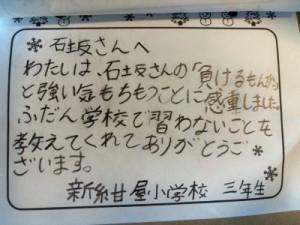 石坂さんへ
わたしは、石坂さんの「負けるもんかっ
と強い気もちもつことに感動しました。
ふだん学校で習わないことを
教えてくれてありがとうご
ざいます。
新糸甘屋小学校 三年生